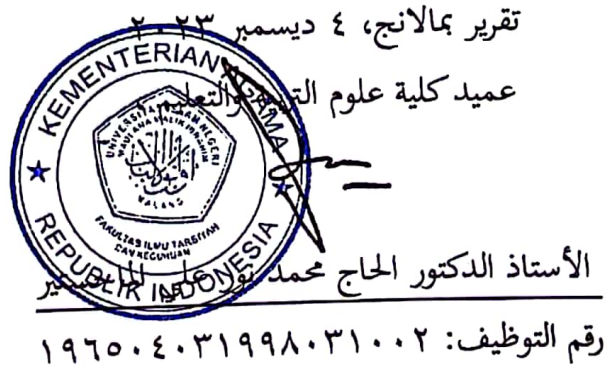 تقرير بمالانج، ٤ ديسمبر ٢٠٢٣
عميد كلية علوم التربية والتعليم
KEMENTERIAN AGAMA
REPUBLIK INDONESIA
UNIVERSITAS ISLAM NEGERI
MAULANA MALIK IBRAHIM
MALANG
FAKULTAS ILMU TARBIYAH
DAN KEGURUAN
الأستاذ الدكتور الحاج محمد نور علي الماجستير
رقم التوظيف: ١٩٦٥٠٤٠٣١٩٩٨٠٣١٠٠٢